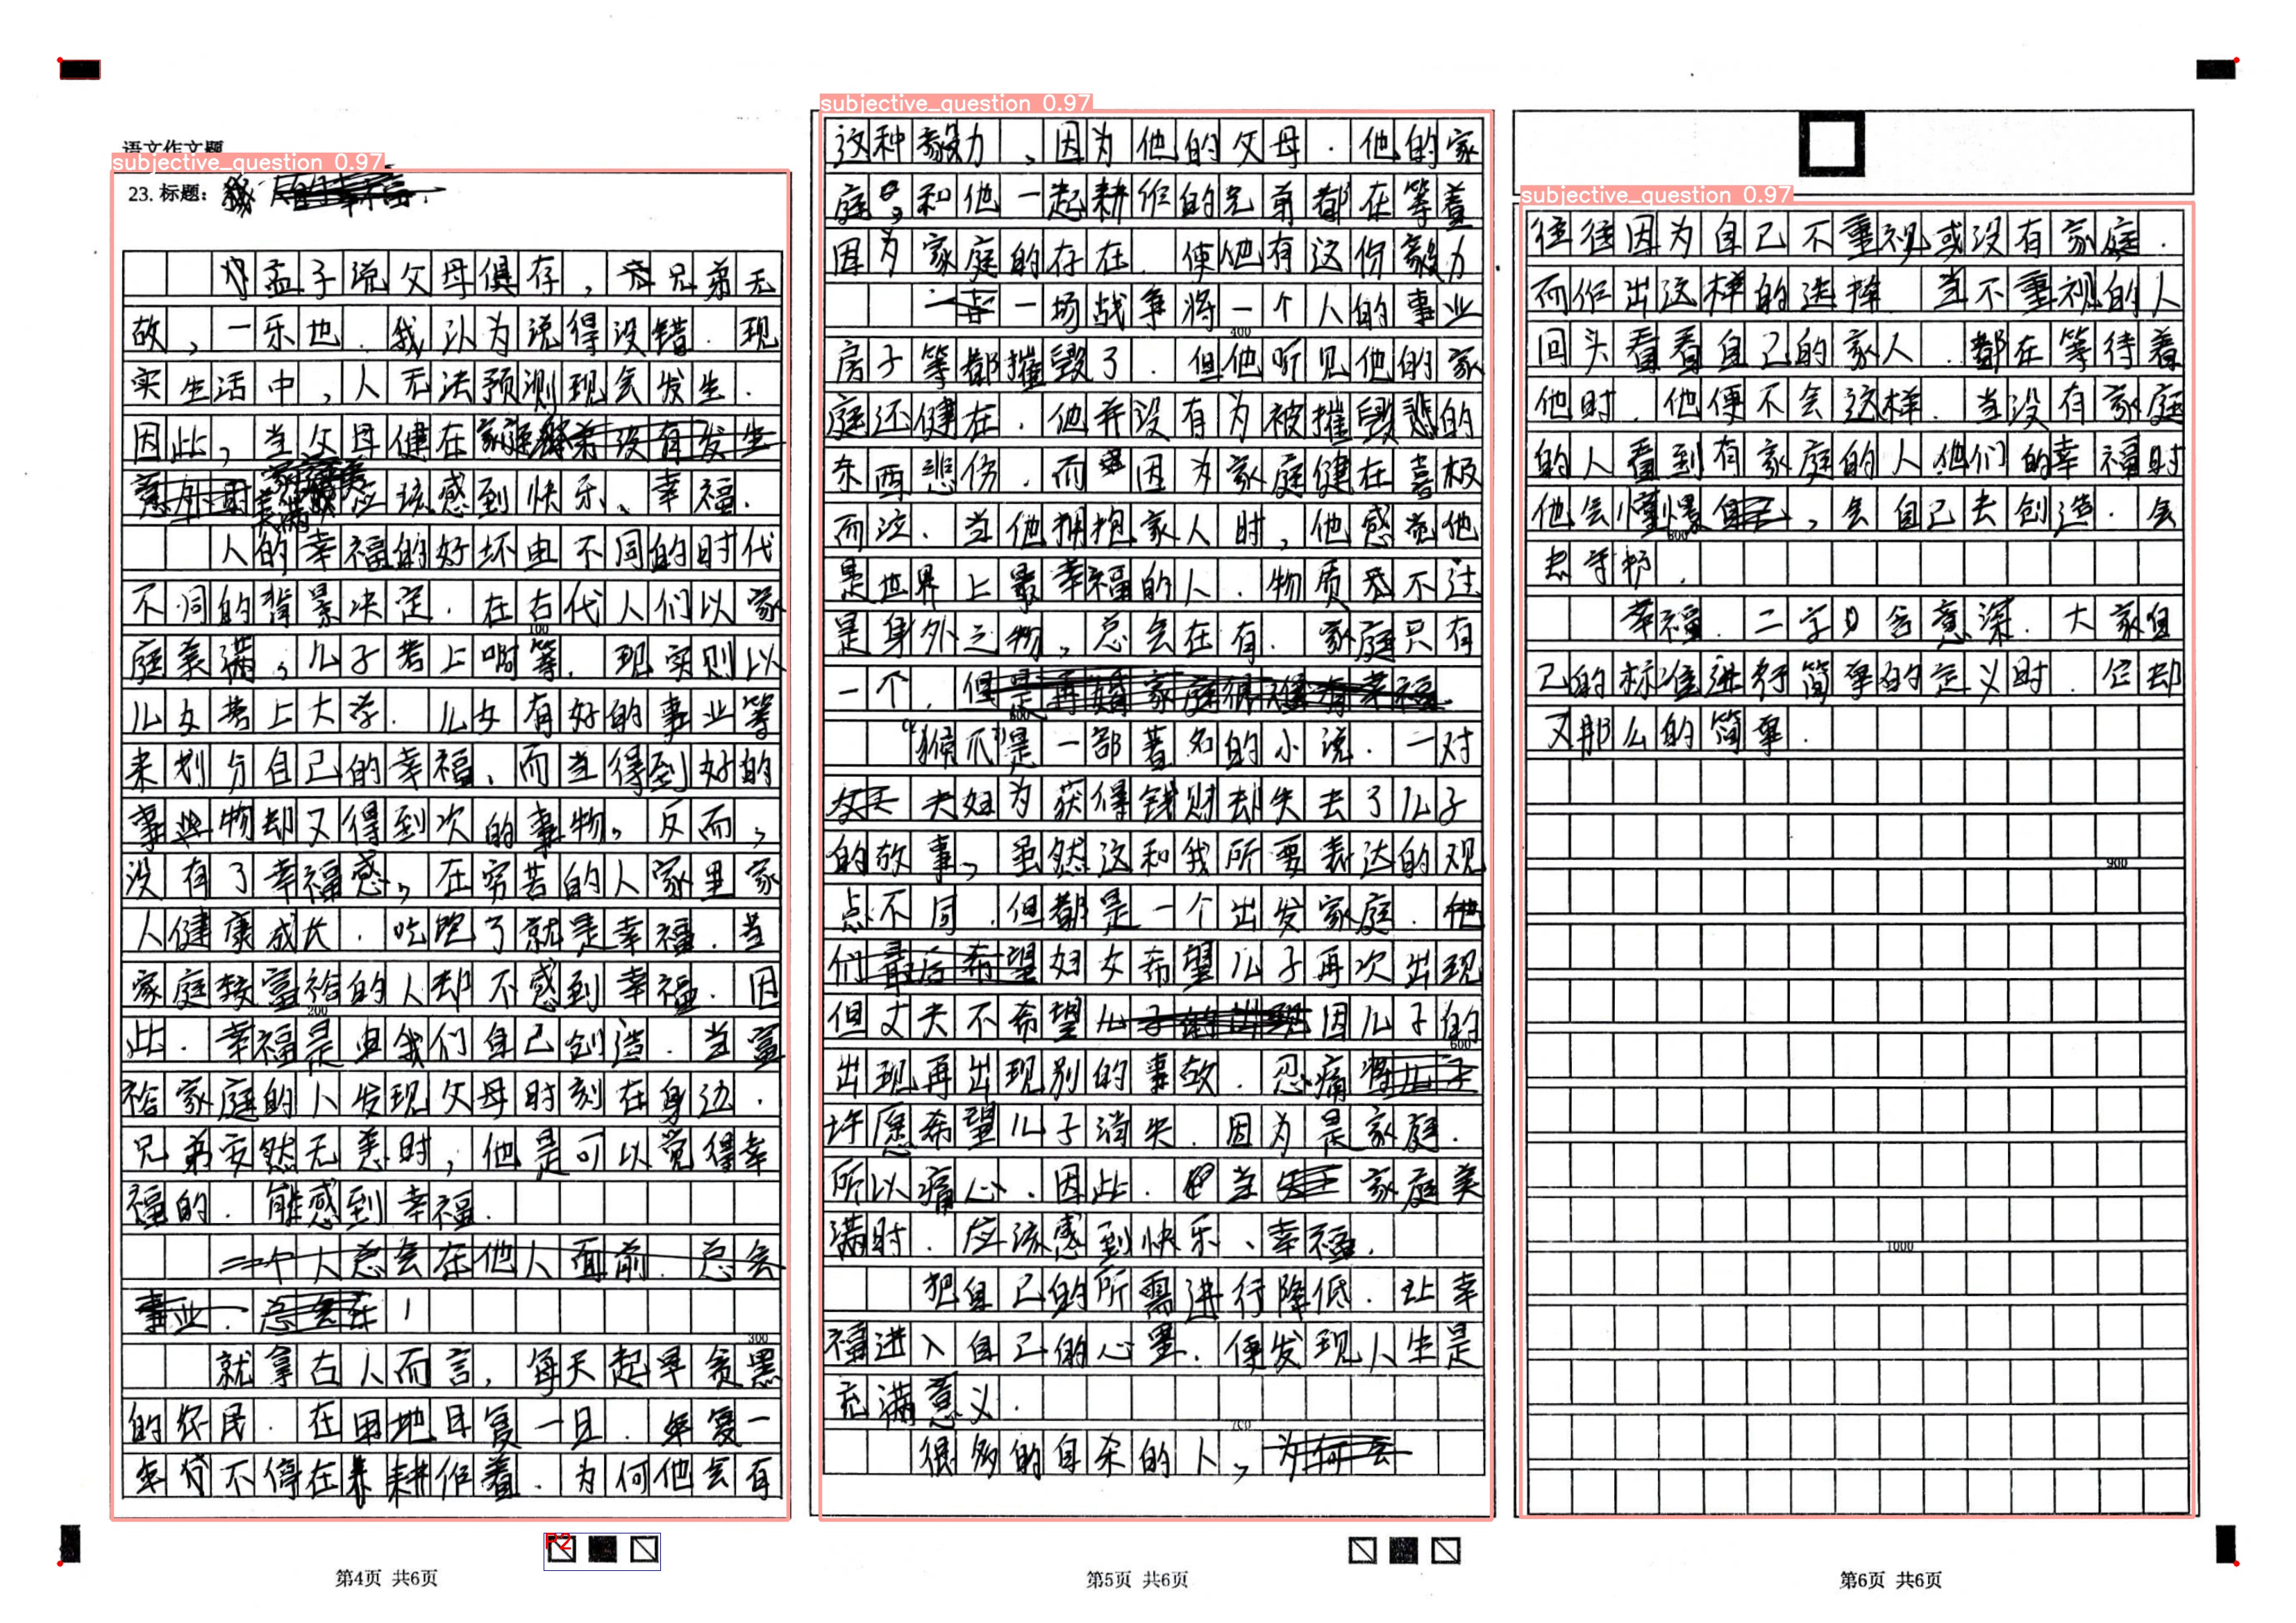 语文作文题
subjective_question 0.97
23. 标题：
孟子说父母俱存，兄弟无
故，一乐也．我认为说得没错．现
实生活中，人无法预测现会发生．
因此，当父母健在
应该感到快乐、幸福．
人的幸福的好坏由不同的时代
不同的背景决定．在古代人们以家
100
庭美满，儿子考上啊等．现实则以
儿女考上大学．儿女有好的事业等
来划分自己的幸福，而当得到好的
事些物却又得到次的事物。反而，
没有了幸福感，在穷苦的人家里家
人健康成长．吃饱了就是幸福．当
家庭较富裕的人却不感到幸福．因
200
此．幸福是由我们自己创造．当富
裕家庭的人发现父母时刻在身边．
兄弟安然无恙时，他是可以觉得幸
福的．能感到幸福．
一个人总会在他人面前．总会
事业．总会在
300
就拿古人而言，每天起早贪黑
的农民．在田地日复一日．年复一
年 不停在 耕作着．为何他会有
第4页 共6页
subjective_question 0.97
这种毅力，因为他的父母．他的家
庭，和他一起耕作的兄弟都在等着
因为家庭的存在．使他有这份毅力
一场战争将一个人的事业
400
房子等都摧毁了．但他听见他的家
庭还健在．他并没有为被摧毁 的
东西悲伤．而 因为家庭健在喜极
而泣．当他拥抱家人时，他感觉他
是世界上最幸福的人．物质 不过
是身外之物，总会在有．家庭只有
一个．但是再婚家庭很难有幸福
500
“猴爪”是一部著名的小说．一对
夫妇为获得钱财却失去了儿子
的故事，虽然这和我所要表达的观
点不同．但都是一个出发家庭．他
们最后希望妇女希望儿子再次出现
但丈夫不希望儿子的出现因儿子的
600
出现再出现别的事故．忍痛将儿子
许愿希望儿子消失．因为是家庭．
所以痛心．因此．当 家庭美
满时．应该感到快乐、幸福．
把自己的所需进行降低．让幸
福进入自己的心里．便发现人生是
充满意义．
700
很多的自杀的人，为何会
第5页 共6页
subjective_question 0.97
往往因为自己不重视或没有家庭．
而作出这样的选择．当不重视的人
回头看看自己的家人．都在等待着
他时．他便不会这样．当没有家庭
的人看到有家庭的人他们的幸福时
他会憧憬自己，会自己去创造．会
800
去守护．
幸福．二字 含意深．大家自
己的标准进行简单的定义时．它却
又那么的简单．
900
1000
第6页 共6页